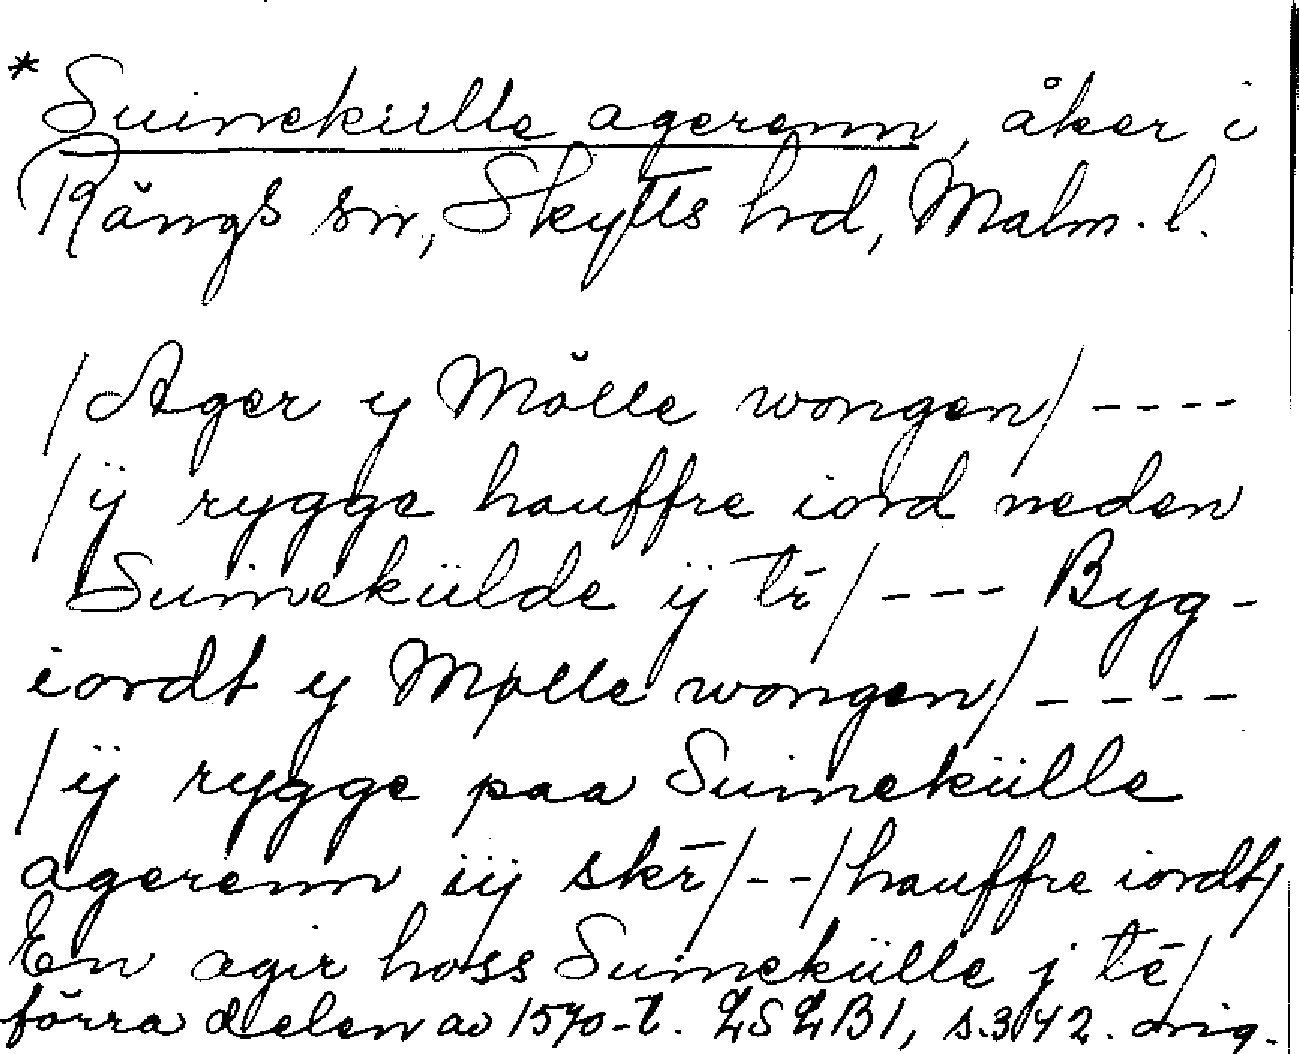 * Suinekülle agerenn, åker i
Rängs sn, Skytts hd, Malm. l.
/Ager y Mölle wongen/ ----
/ÿ rygge hauffre iord neden
Suinekülde ÿ tr̄/ --- Byg-
iordt y Mølle wongen/ ----
/ÿ rygge paa Suinekülle
agerenn iij skr̄/--/hauffre iordt/
En agir hoss Suinekülle j tē/
förra delen av 1570-t. LSLB1, s.342. orig.